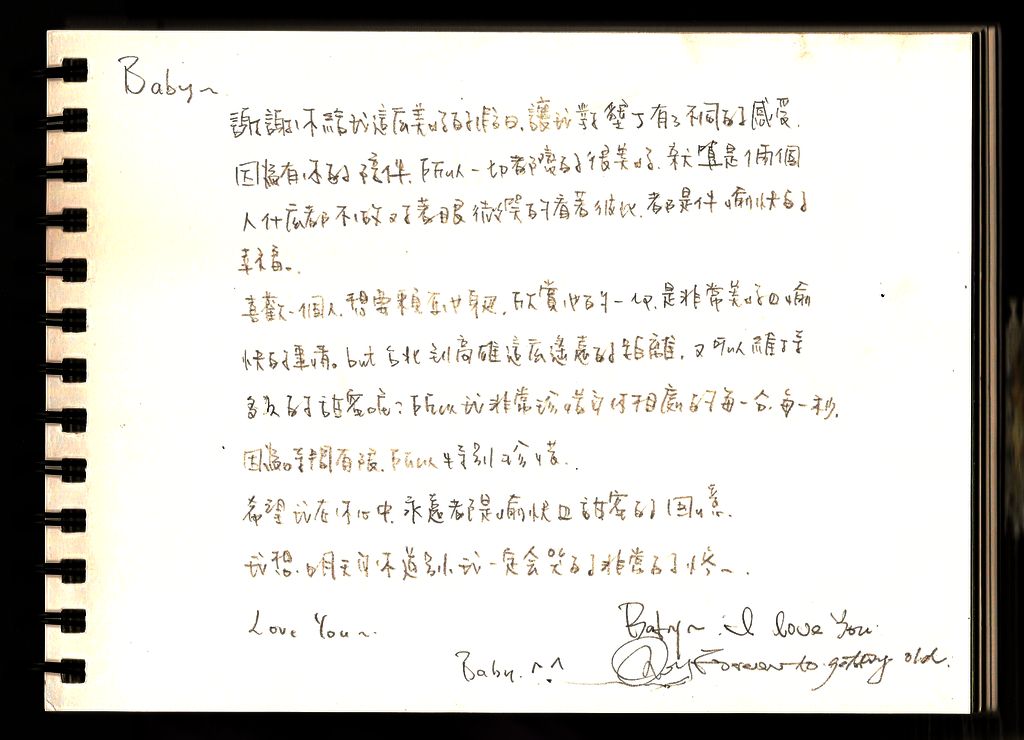 Baby~
謝謝你給我這麼美好的假日.讓我對墾丁有了不同的感受.
因為有你的陪伴.所以一切都變的很美好.就算是兩個
人什麼都不做 只是 微笑的看著彼此.都是件愉快的
幸福。
喜歡一個人.想要 他 .欣賞他的一切.是非常美好且愉
快的事情。but 台北到高雄這麼遙遠的距離.又可以維持
多久的甜蜜呢?所以我非常珍惜與你相處的每一分.每一秒.
因為時間有限.所以特別珍惜.
希望我在你心中.永遠都是愉快且甜蜜的回憶.
我想.明天與你道別.我一定會哭的非常的慘~.
Love You~.
Baby. ^.^
Baby~. I love You.
Forever to getting old.